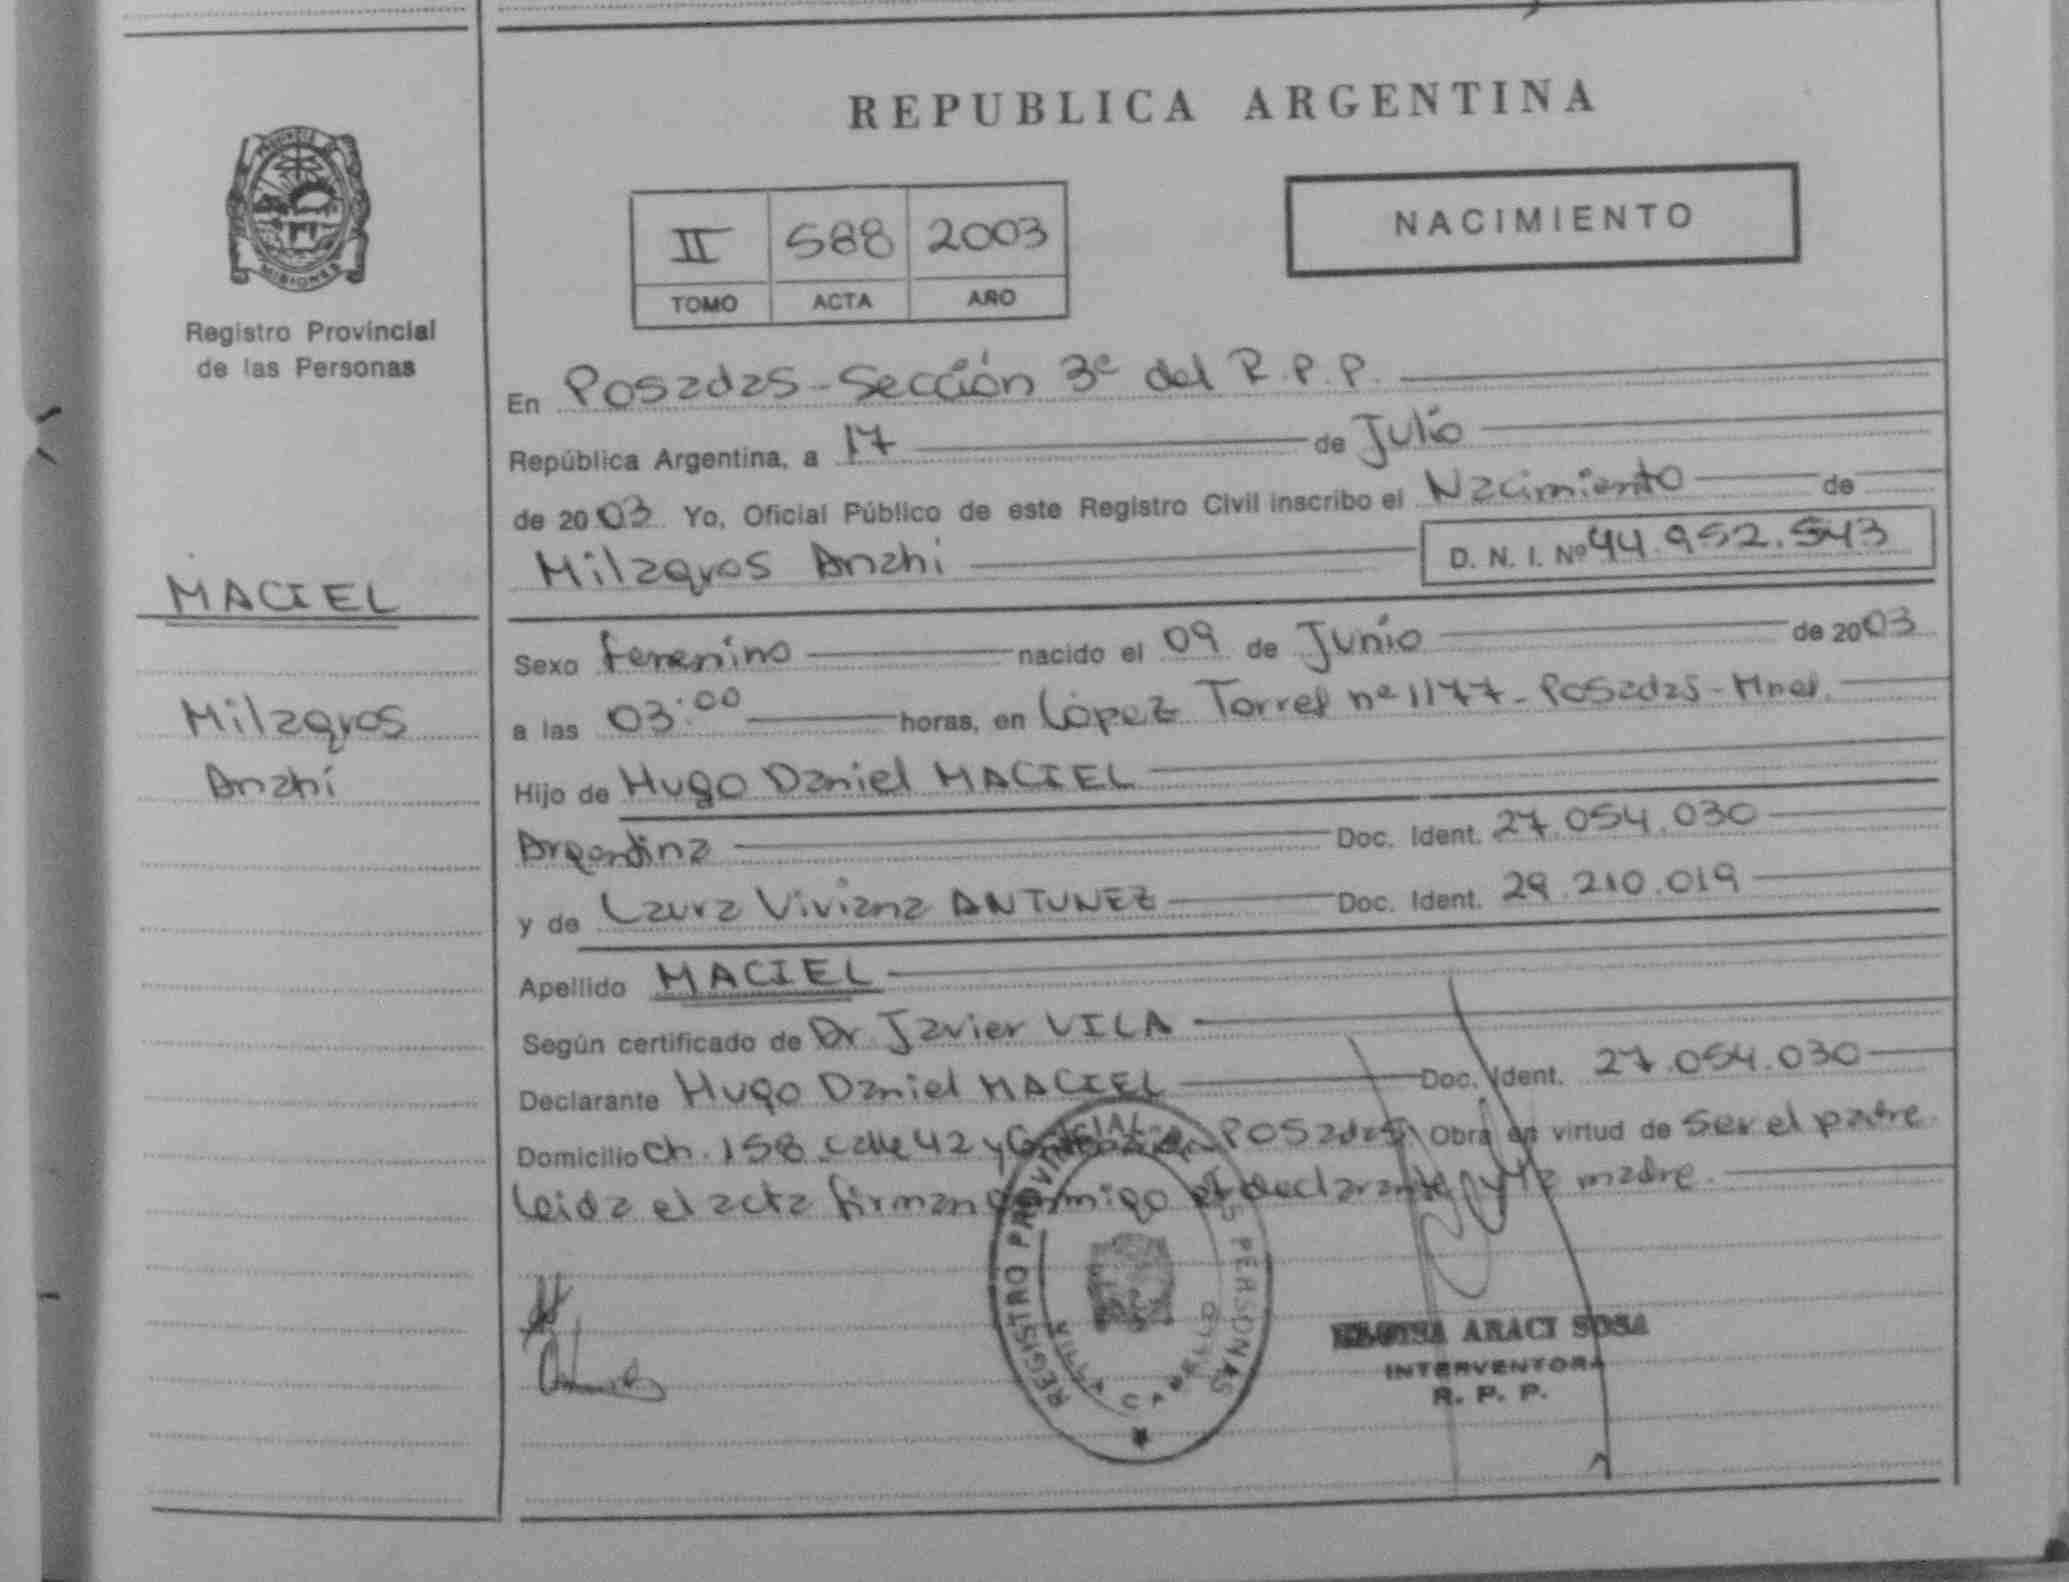 REPUBLICA ARGENTINA
MISIONES
Registro Provincial
de las Personas
II 588 2003
TOMO ACTA AÑO
NACIMIENTO
MACIEL
Milagros
Anahí
En Posadas - Sección 3ª del R.P.P.
República Argentina, a 17 de Julio
de 2003 Yo, Oficial Público de este Registro Civil inscribo el Nacimiento de
Milagros Anahi D. N. I. Nº 44.952.543
Sexo femenino nacido el 09 de Junio de 2003
a las 03:00 horas, en López Torres nº 1177 - Posadas - Mnes.
Hijo de Hugo Daniel MACIEL
Argentina Doc. Ident. 27.054.030
y de Laura Viviana ANTUNEZ Doc. Ident. 29.210.019
Apellido MACIEL
Según certificado de Dr. Javier VILA
Declarante Hugo Daniel MACIEL Doc. Ident. 27.054.030
Domicilio Ch. 158 calle 42 y Posadas Obra en virtud de ser el padre
leida el acta firman conmigo el declarante y la madre.
REGISTRO PROVINCIAL PERSONAS
ARACI SOSA
INTERVENTORA
R. P. P.